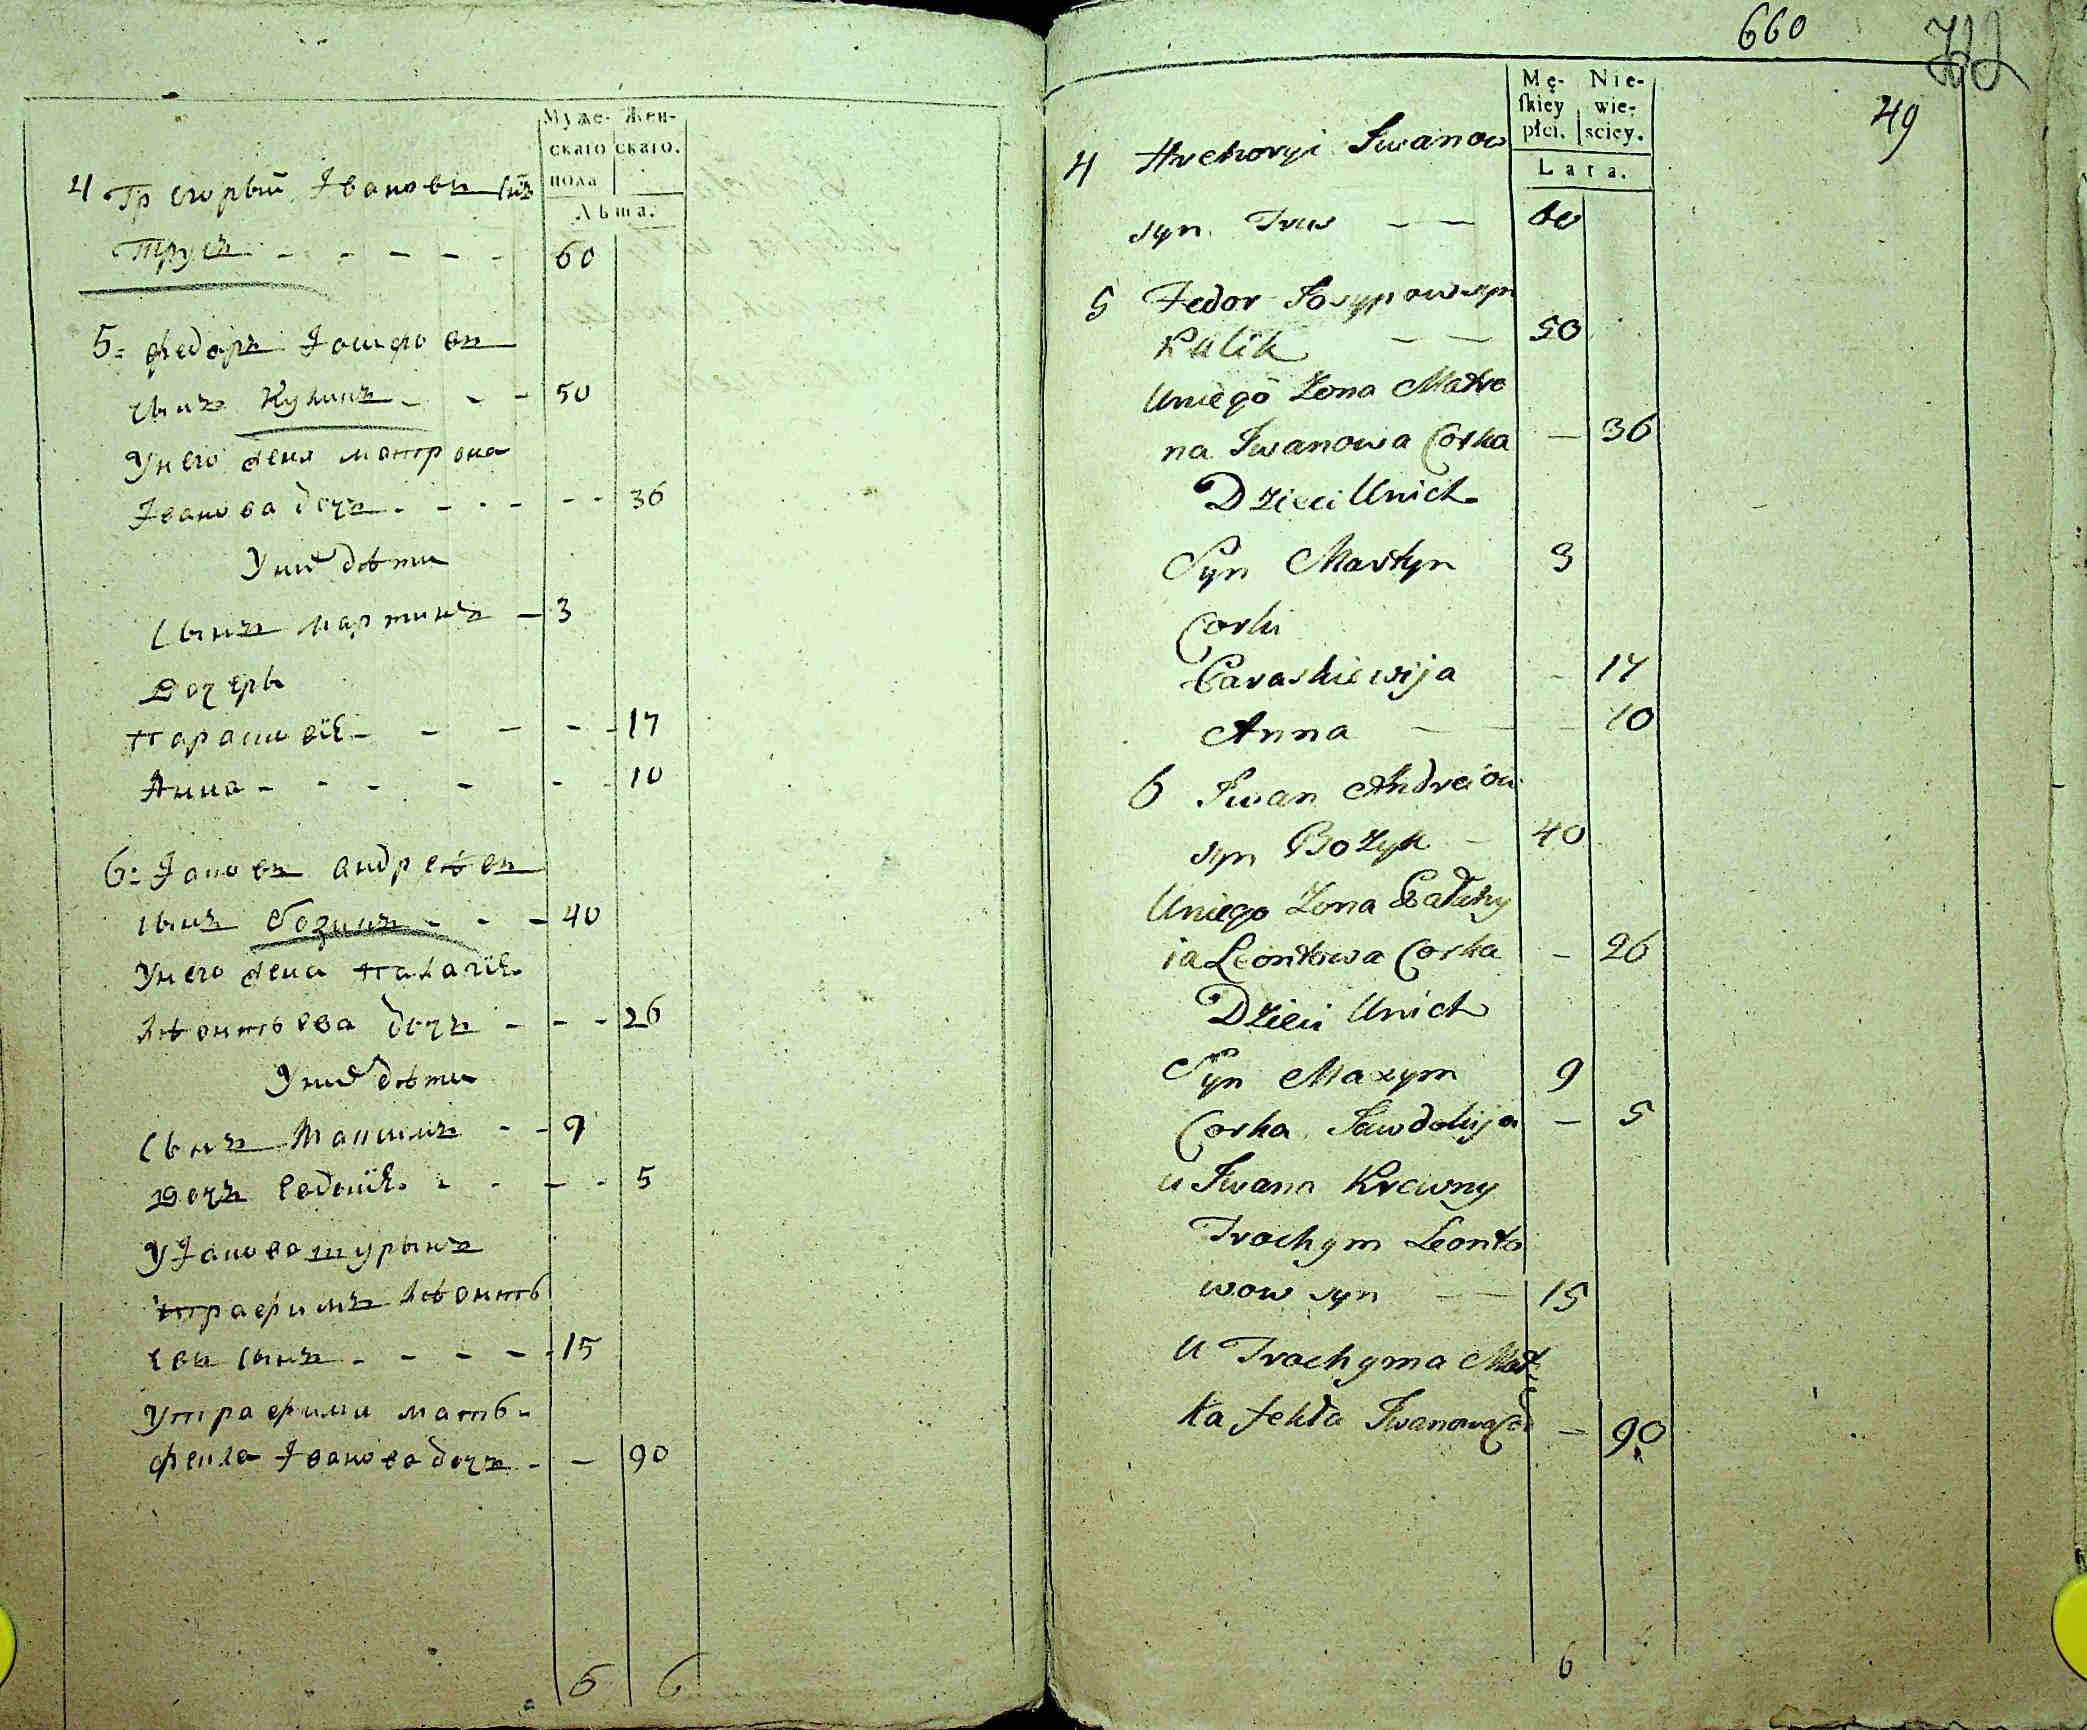 Муже- Жен-
скаго скаго.
пола
Лѣта.
4 Григорый Ивановъ сынъ
Трусъ - - - - - 60
5 = Федоръ Iосифовъ
сынъ Куликъ - - - 50
У него жена матрона
Иванова дочь - - - - - - 36
У них дѣти
Сынъ мартинъ - 3
Дочери
Парасковiя - - - - - 17
Анна - - - - - - 10
6 = Iаковъ андрѣевъ
сынъ Бозикъ - - - 40
У него жена Палагiя
Лѣонтьева дочь - - - 26
У них дѣти
Сынъ Максимъ - - 9
Дочь Евдокiя - - - - 5
У Iакова шурынъ
трафимъ Лѣонть
евъ сынъ - - - - - 15
У трафима мать
фекла Иванова дочь - - 90
6 6
660
49
Mę- Nie-
ſkiey wie-
płci. sciey.
Lata.
4 Hrehoryi Iwanow
syn Trus — — 60
5 Fedor Iosypow syn
Kulik — — 50
Uniego Żona Matro
na Iwanowa Corka — 36
Dzieci Unich
Syn Martyn 3
Corki
Paraskiewija - 17
Anna — — - 10
6 Iwan Andreiow
syn Bozyk - 40
Uniego Żona Pałahy
ia Leontowa Corka - 26
Dzieci Unich
Syn Maxym 9
Corka Iawdokija - 5
u Iwana Krewny
Trochym Leonto
wow syn — — 15
U Trochyma Mat
ka fekła Iwanowa Cor - 90
6